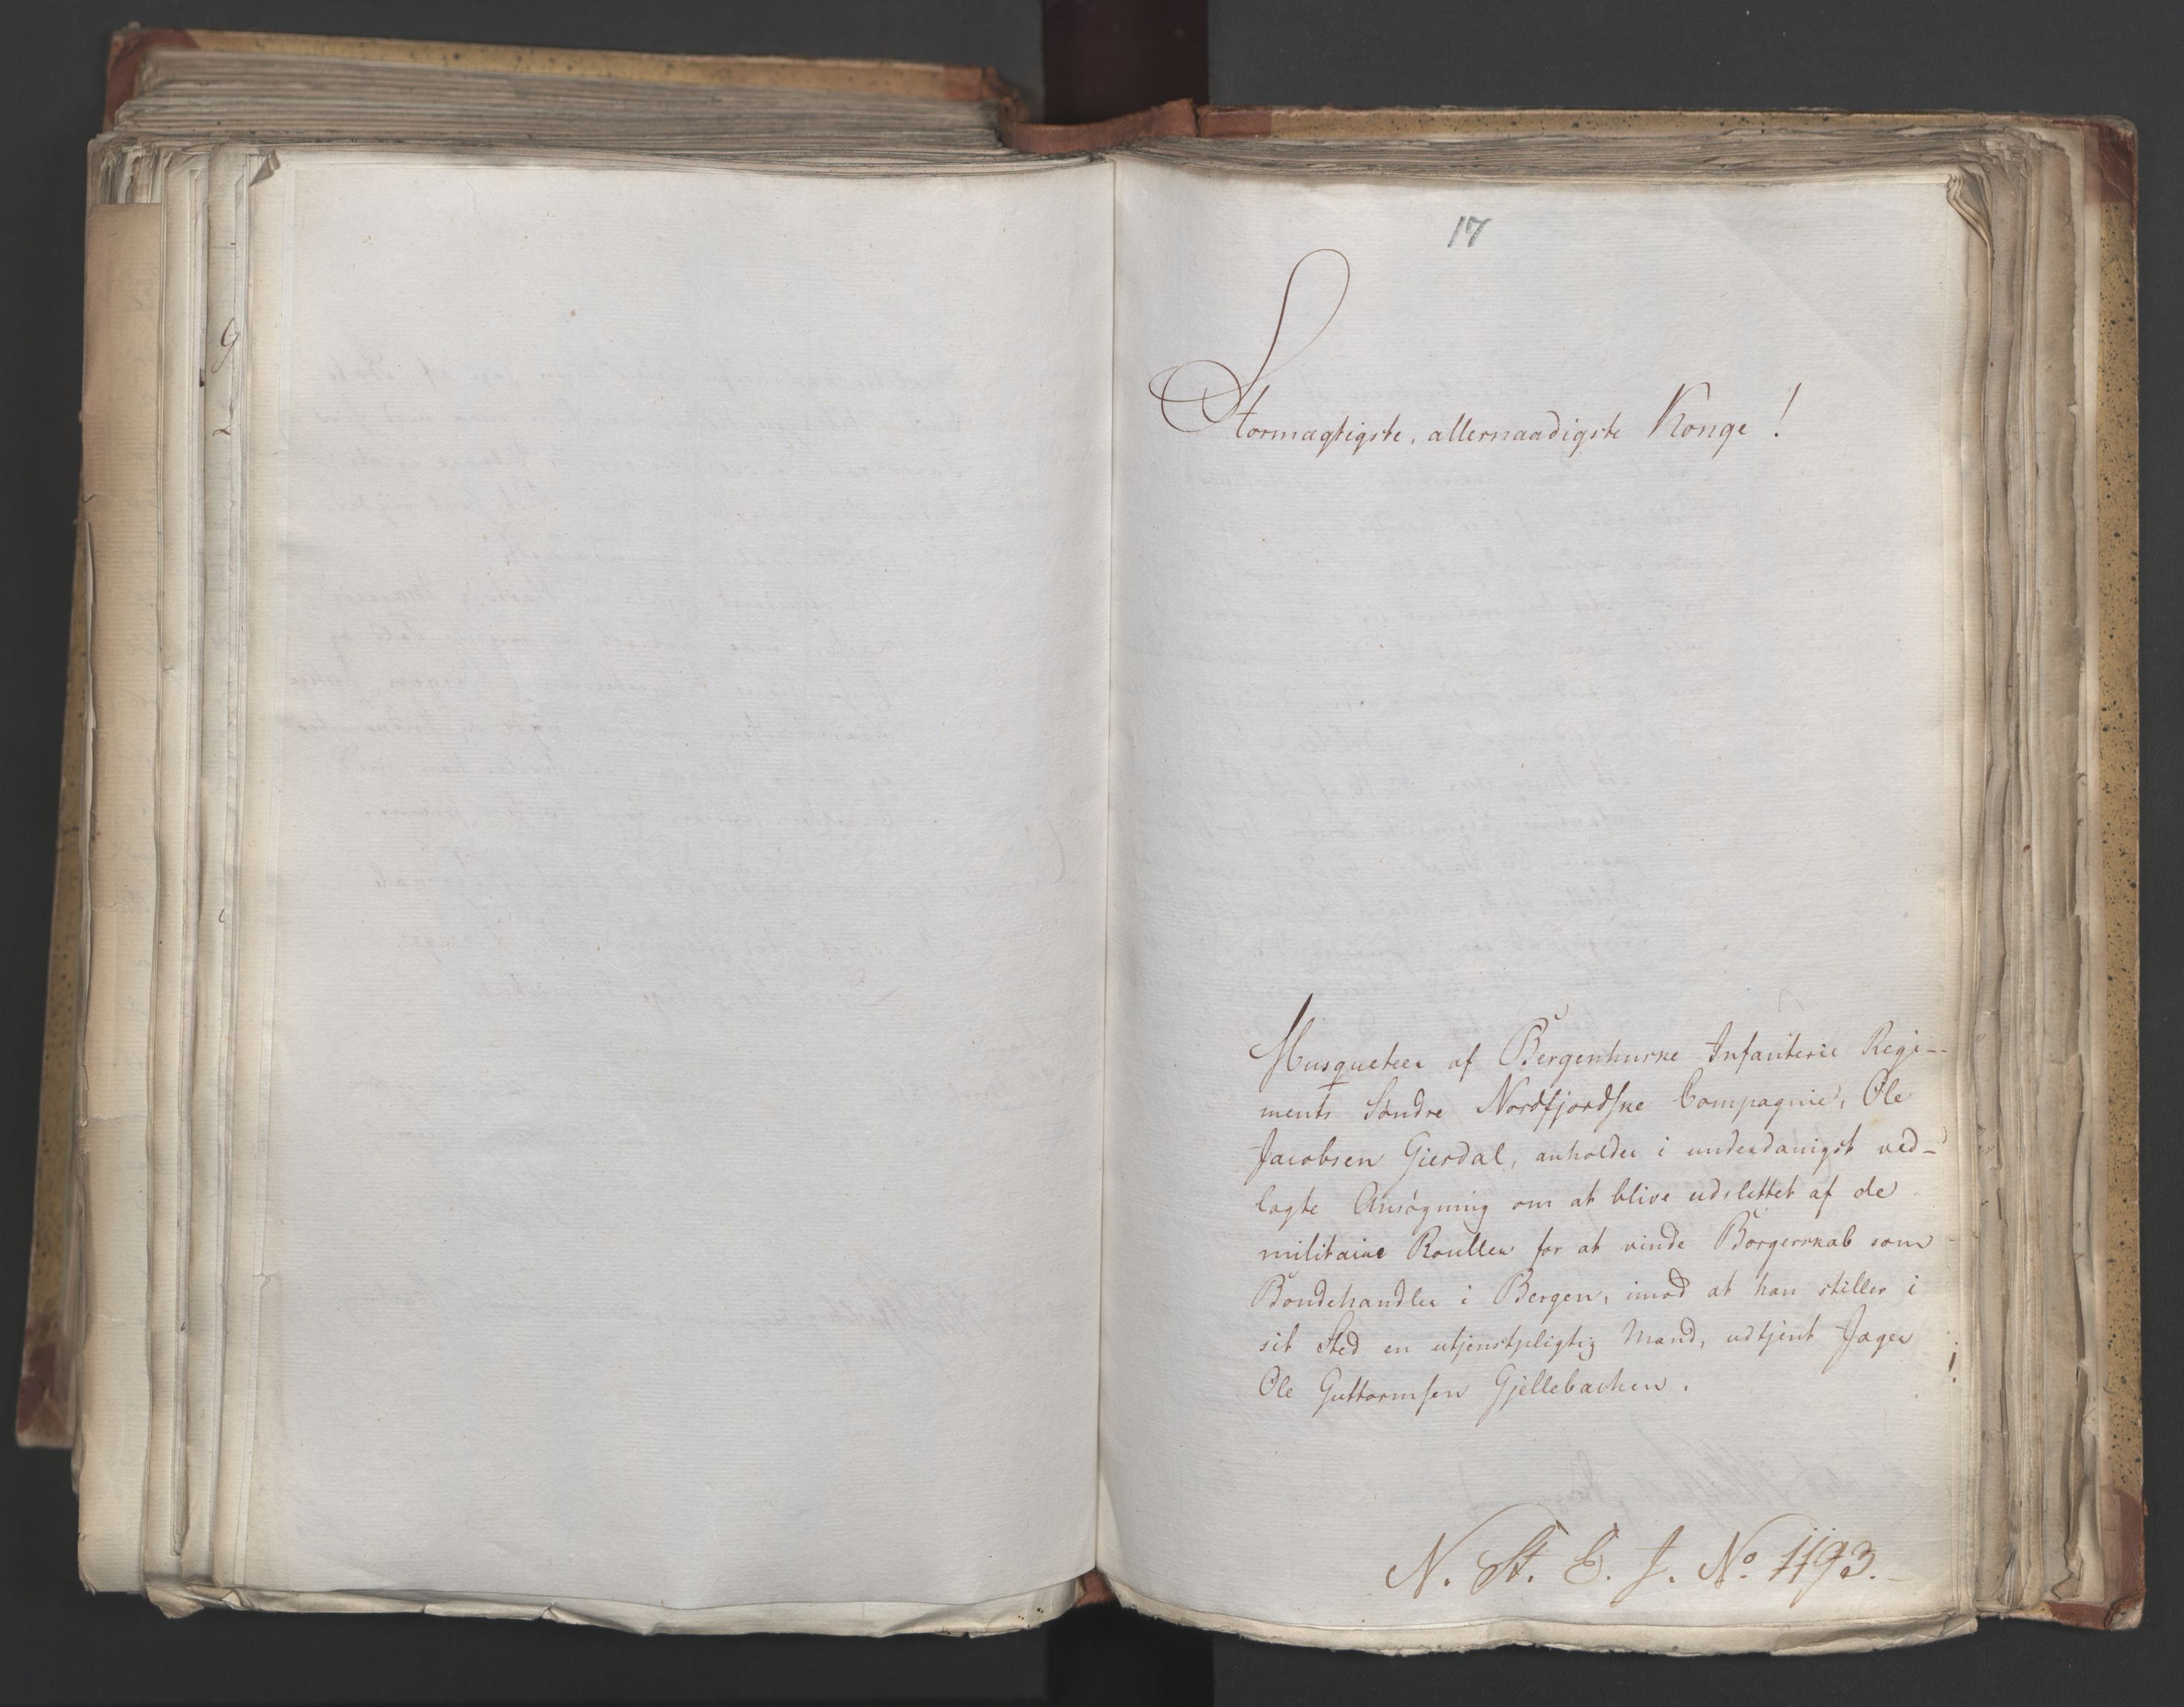 17
Stormægtigste, allernaadigste Konge!
Musqueteer af Bergenhuske Infanterie Regi-
ments Søndre Nordfjordske Compagnie, Ole
Jacobsen Gierdal, anholder i underdanigst ved-
lagte Ansøgning om at blive udslettet af de
militaire Rouller for at vinde Borgerskab som
Bondehandler i Bergen, imod at han stiller i
sit Sted en utjenstpligtig Mand, udtjent Jæger
Ole Guttormsen Gjellebachen.
N. St. C. J. No. 1193.